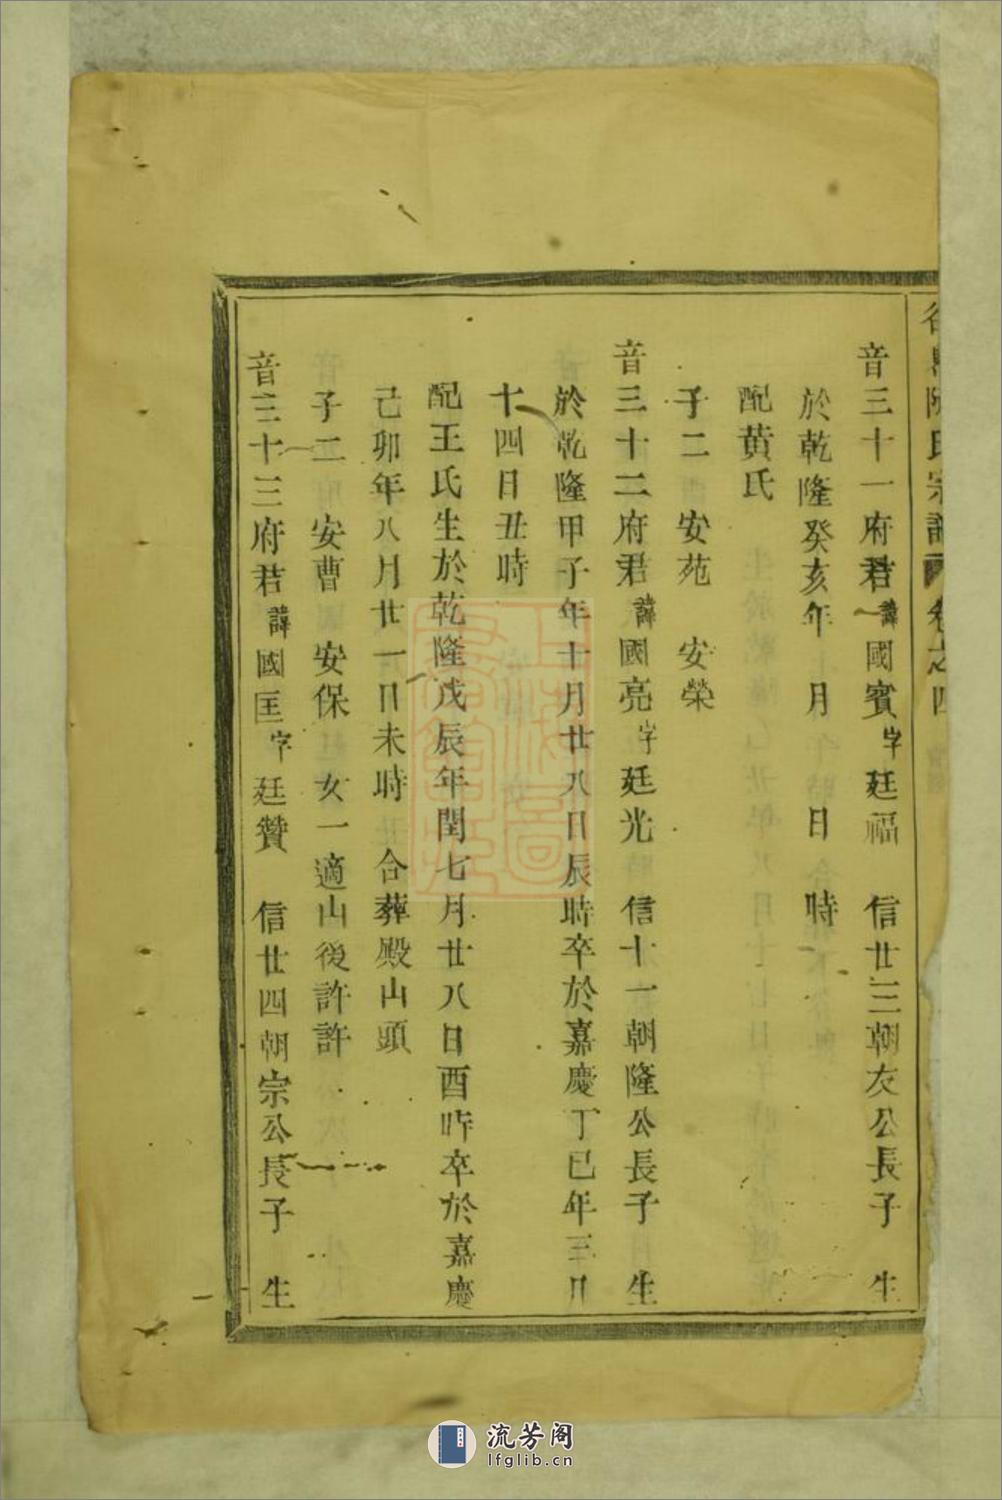 氏宗譜 卷之四
音三十一府君諱國賓字廷福 信廿三朝友公長子 生
於乾隆癸亥年 月 日 時
配黄氏
子二 安苑 安榮
音三十二府君諱國亮字廷光 信十一朝隆公長子 生
於乾隆甲子年十月廿八日辰時卒於嘉慶丁巳年三月
十四日丑時
配王氏生於乾隆戊辰年閏七月廿八日酉時卒於嘉慶
己卯年八月廿一日未時 合葬殿山頭
子二 安曹 安保 女一適山後許許
音三十三府君諱國匡字廷贊 信廿四朝宗公長子 生
流芳阁
lfglib.cn